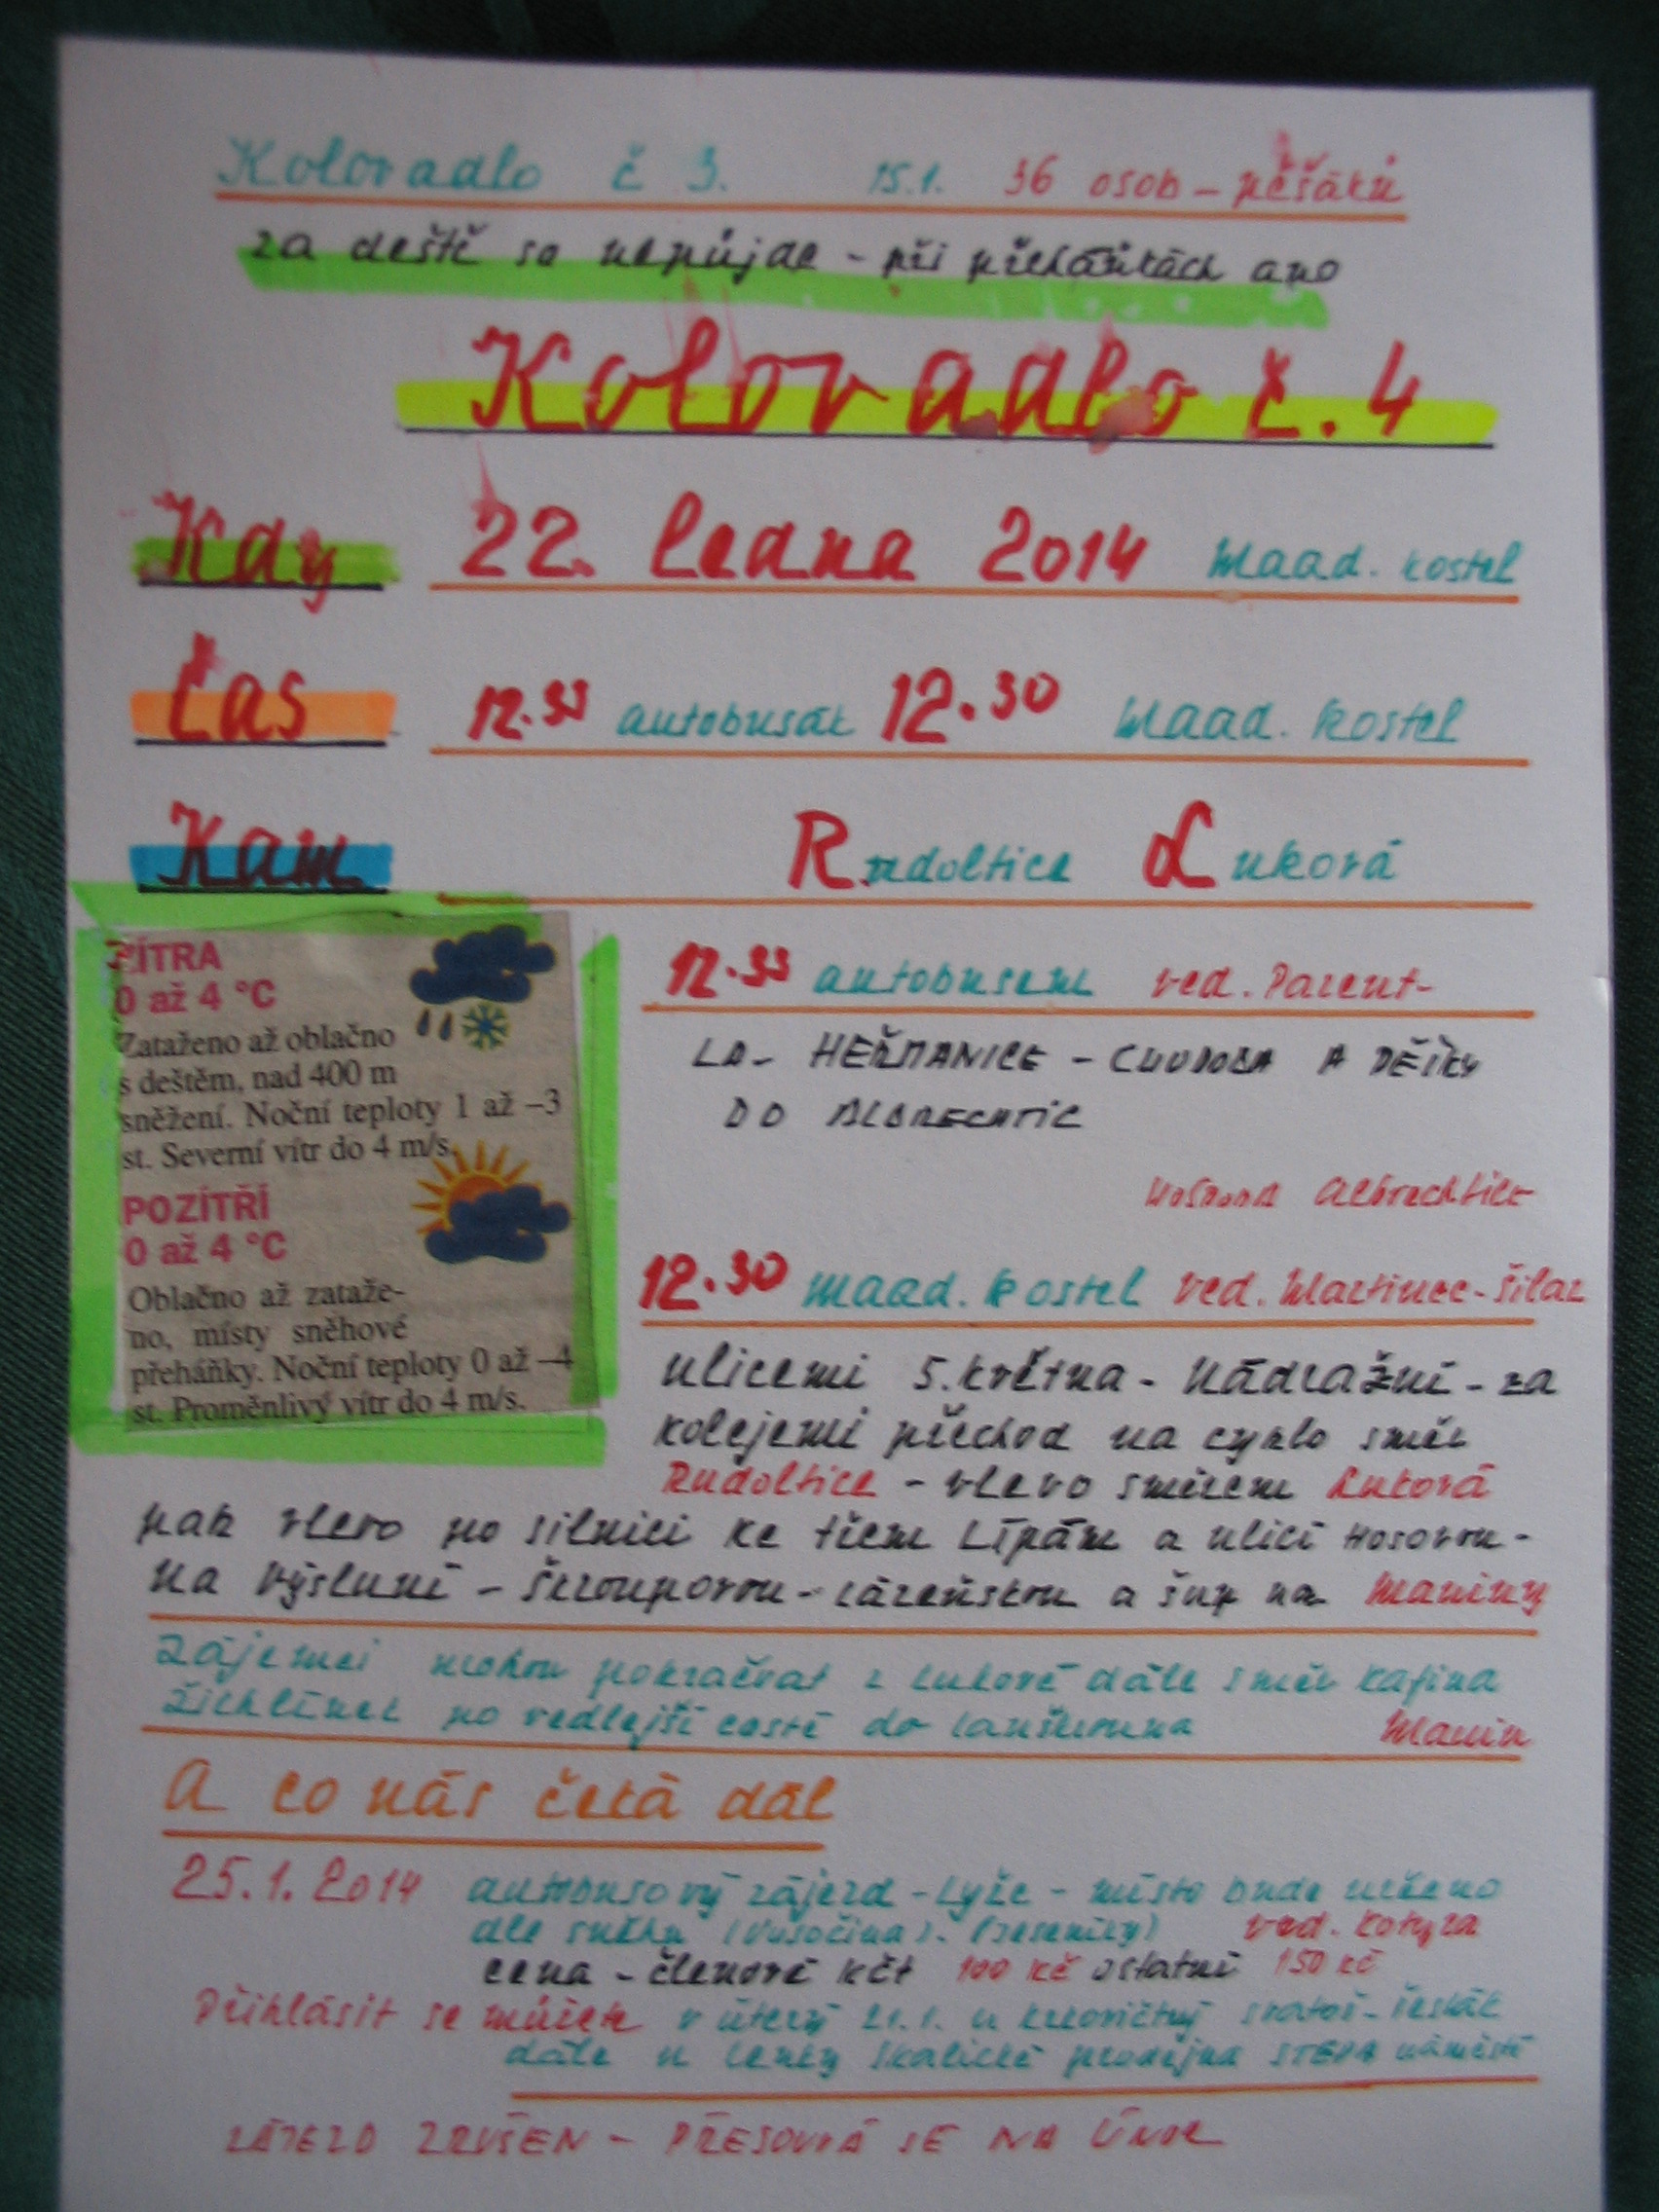 Koloradlo č 3. 15.1. 36 osob - pěšáků
za deště se nepůjde - při přeháňkách ano
Koloradlo č.4
Kdy 22. ledna 2014 Maad. kostel
čas 12.33 autobusák 12.30 Maad. kostel
Kam Rudoltice Luková
ZÍTRA
0 až 4 °C
Zataženo až oblačno
s deštěm, nad 400 m
sněžení. Noční teploty 1 až –3
st. Severní vítr do 4 m/s.
POZÍTŘÍ
0 až 4 °C
Oblačno až zataže-
no, místy sněhové
přeháňky. Noční teploty 0 až –4
st. Proměnlivý vítr do 4 m/s.
12.33 autobusem ved. Parent-
LA- HEŘMANICE - CHUDOBA A PĚŠKY
DO ALBRECHTIC
Hospoda Albrechtice
12.30 Maad. kostel ved. Martinec-Šilar
ulicemi 5.května - Nádražní - za
kolejemi přechod na cyklo směr
Rudoltice - vlevo směrem Luková
pak vlevo po silnici ke třem Lípám a ulicí Hosovou -
Na Výsluní - Škroupovou - Lázeňskou a šup na Maniny
Zájemci mohou pokračvat z Lukové dále směr kafina
Žichlínek po vedlejší cestě do Lanškrouna Manin
A co nás čeká dál
25.1.2014 autobusový zájezd - Lyže - místo bude určeno
dle sněhu (Vysočina). (Jeseníky) ved. Kotyza
cena - členové KČT 100 kč ostatní 150 kč
Přihlásit se můžete v úterý 21.1. u
dále u Lenky Skalické prodejna STEPA náměstí
ZÁJEZD ZRUŠEN - PŘESOUVÁ SE NA ÚNOR